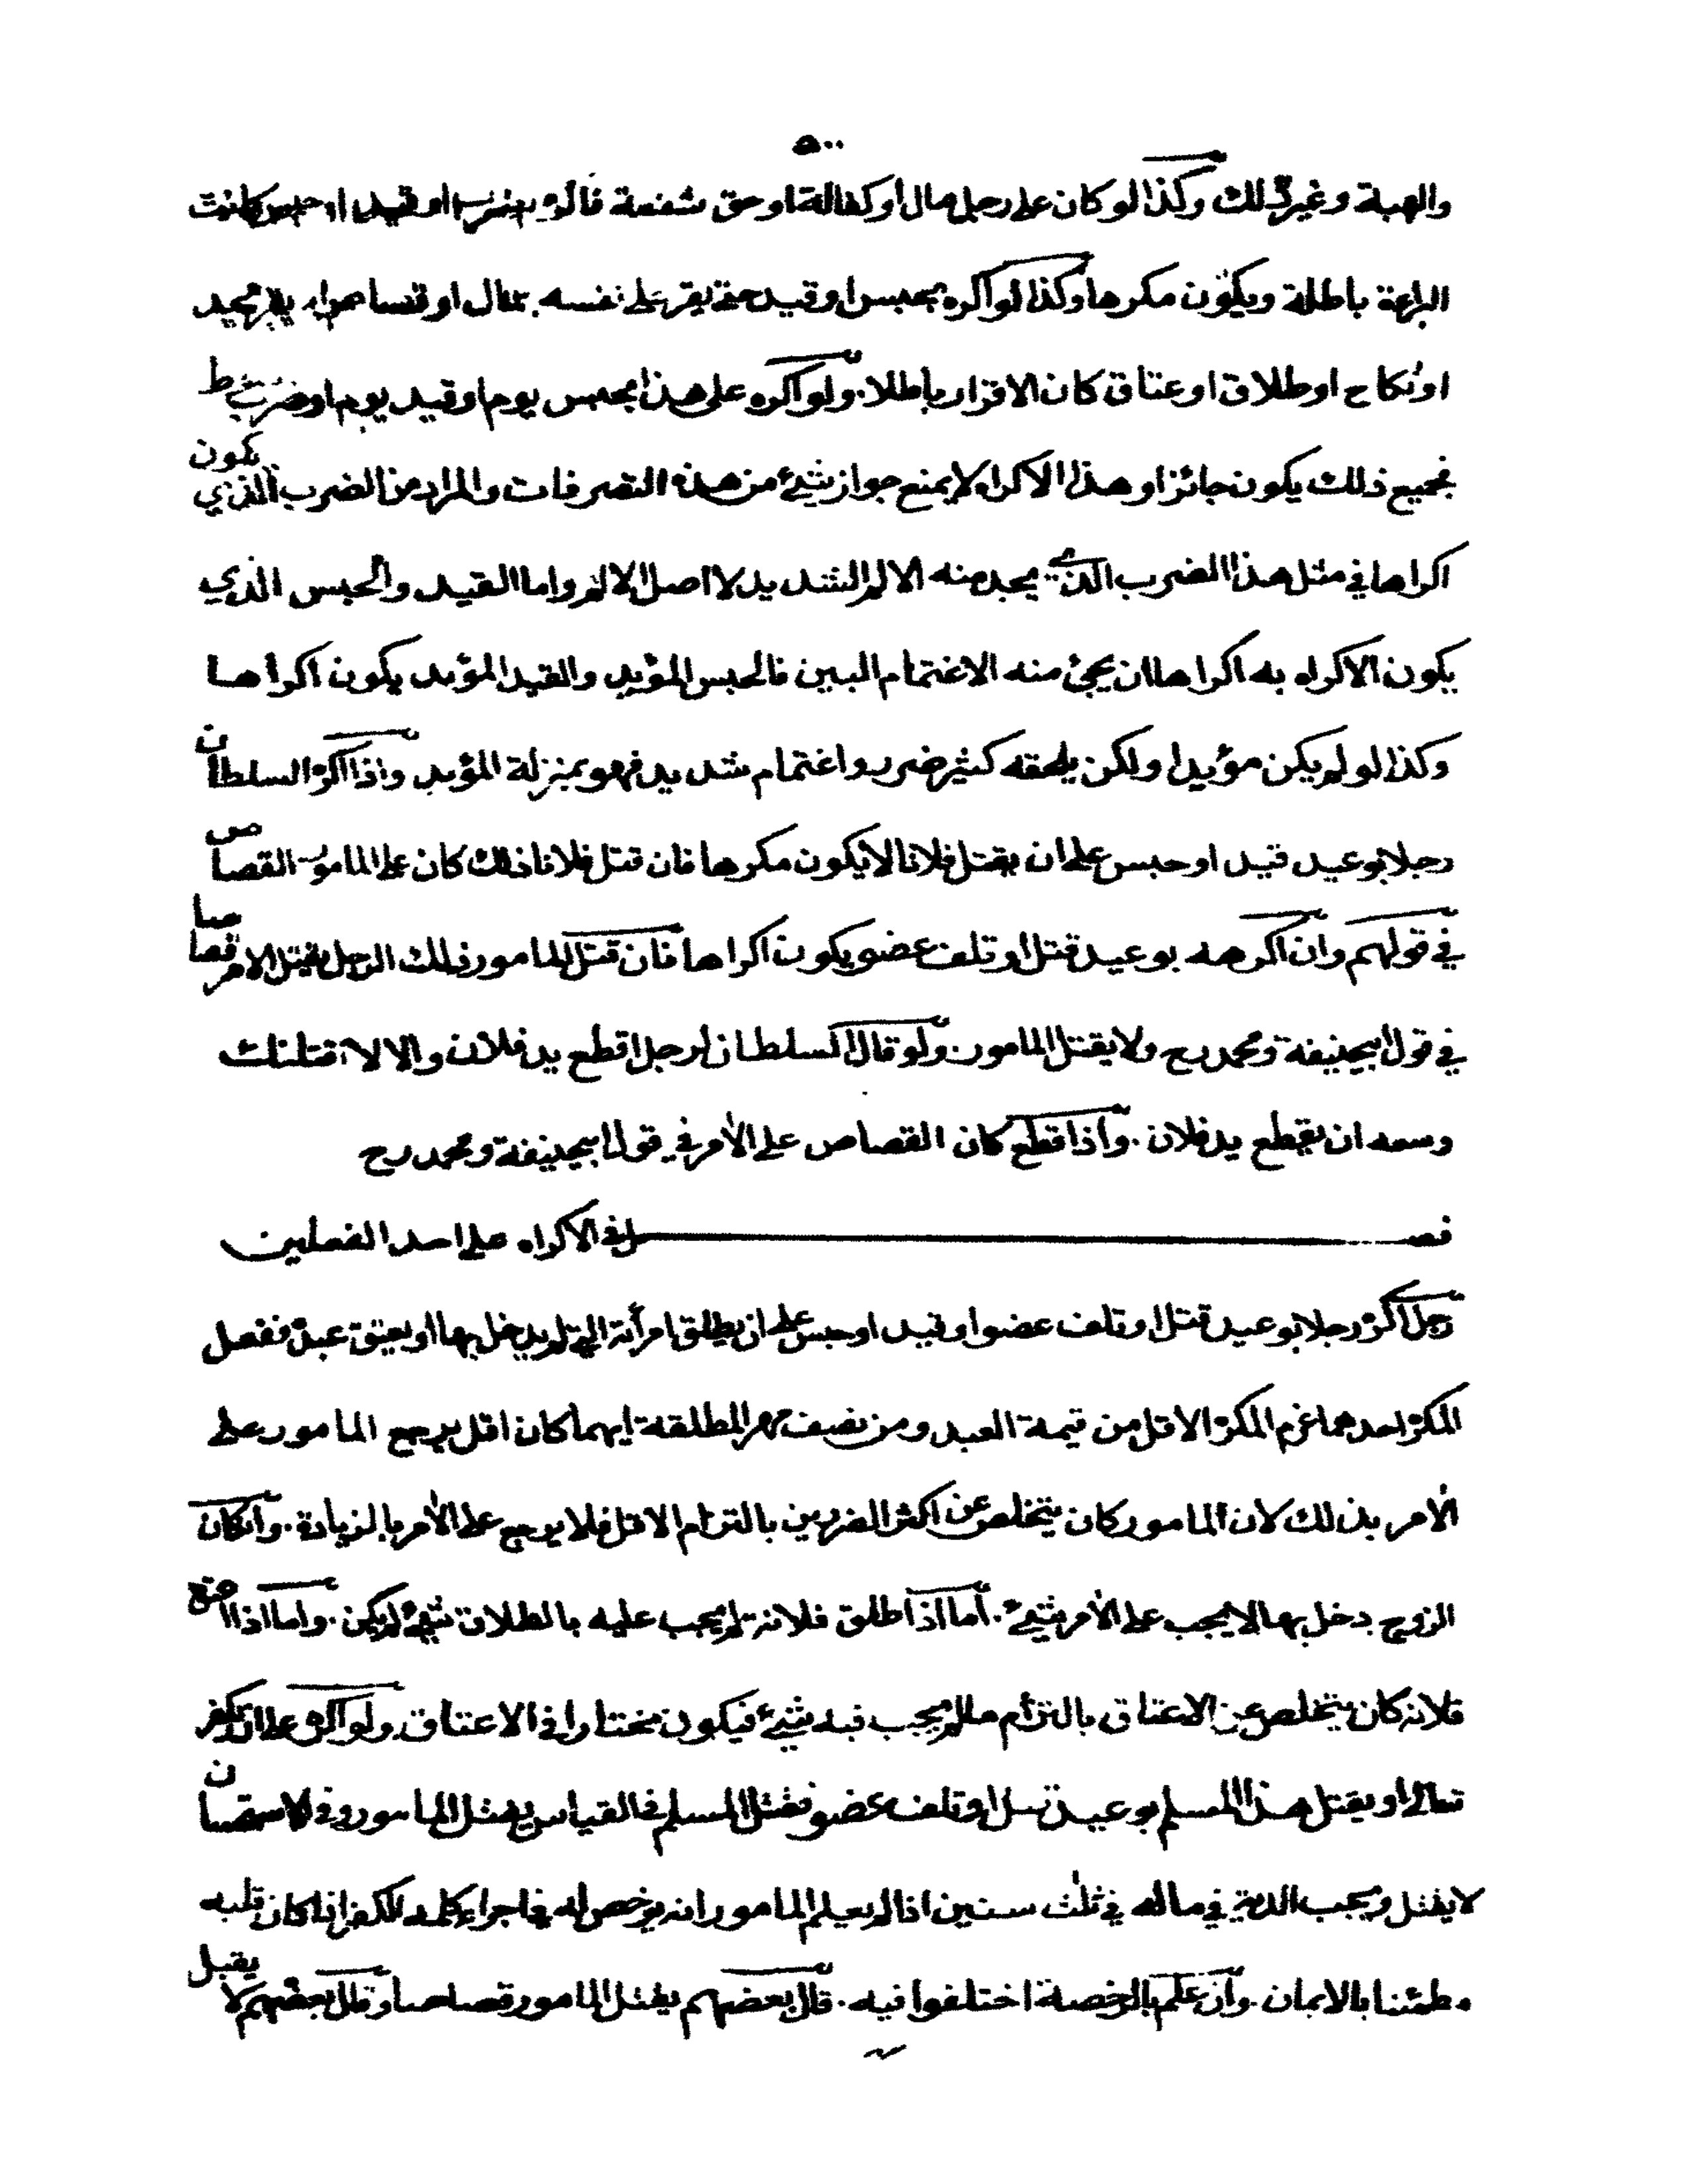 ٥٠٠
والهبة وغير ذلك وكذا لو كان على رجل مال أو كفالة او حق شفعة فاكره بضرب او قيد او حبس كانت
البراءة باطلة ويكون مكرها وكذا لو اكره بحبس او قيد حتى يقر على نفسه بمال او قصاص او
او نكاح او طلاق او عتاق كان الاقرار باطلا. ولو اكره على هذا بحبس يوم او قيد يوم او ضرب سوط
فجميع ذلك يكون جائزا وهذا الاكراه لا يمنع جواز شئ من هذه التصرفات والمراد من الضرب الذي يكون
اكراها في مثل هذا الضرب الذي يجد منه الالم الشديد لا اصل الالم واما القيد والحبس الذي
يكون الاكراه به اكراها ان يجئ منه الاغتمام البين فالحبس المؤبد والقيد المؤبد يكون اكراها
وكذا لو لم يكن مؤبدا ولكن يلحقه كثير ضرر واغتمام شديد فهو بمنزلة المؤبد واذا اكره السلطان
رجلا بوعيد قيد او حبس على ان يقتل فلانا لا يكون مكرها فان قتل فلانا ذلك كان على المامور القصاص
في قولهم وان اكرهه بوعيد قتل او تلف عضو يكون اكراها فان قتل المامور ذلك الرجل يقتل الامر قصاصا
في قول ابيحنيفة ومحمد رح ولا يقتل المامور. ولو قال السلطان لرجل اقطع يد فلان والا لاقتلنك
وسعه ان يقطع يد فلان. واذا قطع كان القصاص على الأمر في قول ابيحنيفة ومحمد رح
فصل في الاكراه على احد الفعلين
رجل اكره رجلا بوعيد قتل او تلف عضو او قيد او حبس على ان يطلق امرأته التي لم يدخل بها او يعتق عبده ففعل
المكره احدهما غرم المكره الاقل من قيمة العبد ومن نصف مهر المطلقة ايهما كان اقل يرجع المامور على
الأمر بذلك لان المامور كان يتخلص عن اكثر الضررين بالتزام الاقل فلا يرجع على الأمر بالزيادة. وان كان
الزوج دخل بها لا يجب على الأمر شئ. اما اذا طلق فلانه لم يجب عليه بالطلاق شئ لم يكن. واما اذا اعتق
فلانه كان يتخلص عن الاعتاق بالتزام ما لم يجب فيه شئ فيكون مختارا في الاعتاق. ولو اكره على ان يكفر
تعالى او يقتل هذا المسلم بوعيد قتل او تلف عضو فقتل المسلم في القياس يقتل المامور وفي الاستحسان
لا يقتل ويجب الدية في ماله في ثلث سنين اذا لم يعلم المامور انه يرخص له في اجراء كلمة الكفر اذا كان قلبه
مطمئنا بالايمان. وان علم بالرخصة اختلفوا فيه. قال بعضهم يقتل المامور قصاصا وقال بعضهم لا يقتل